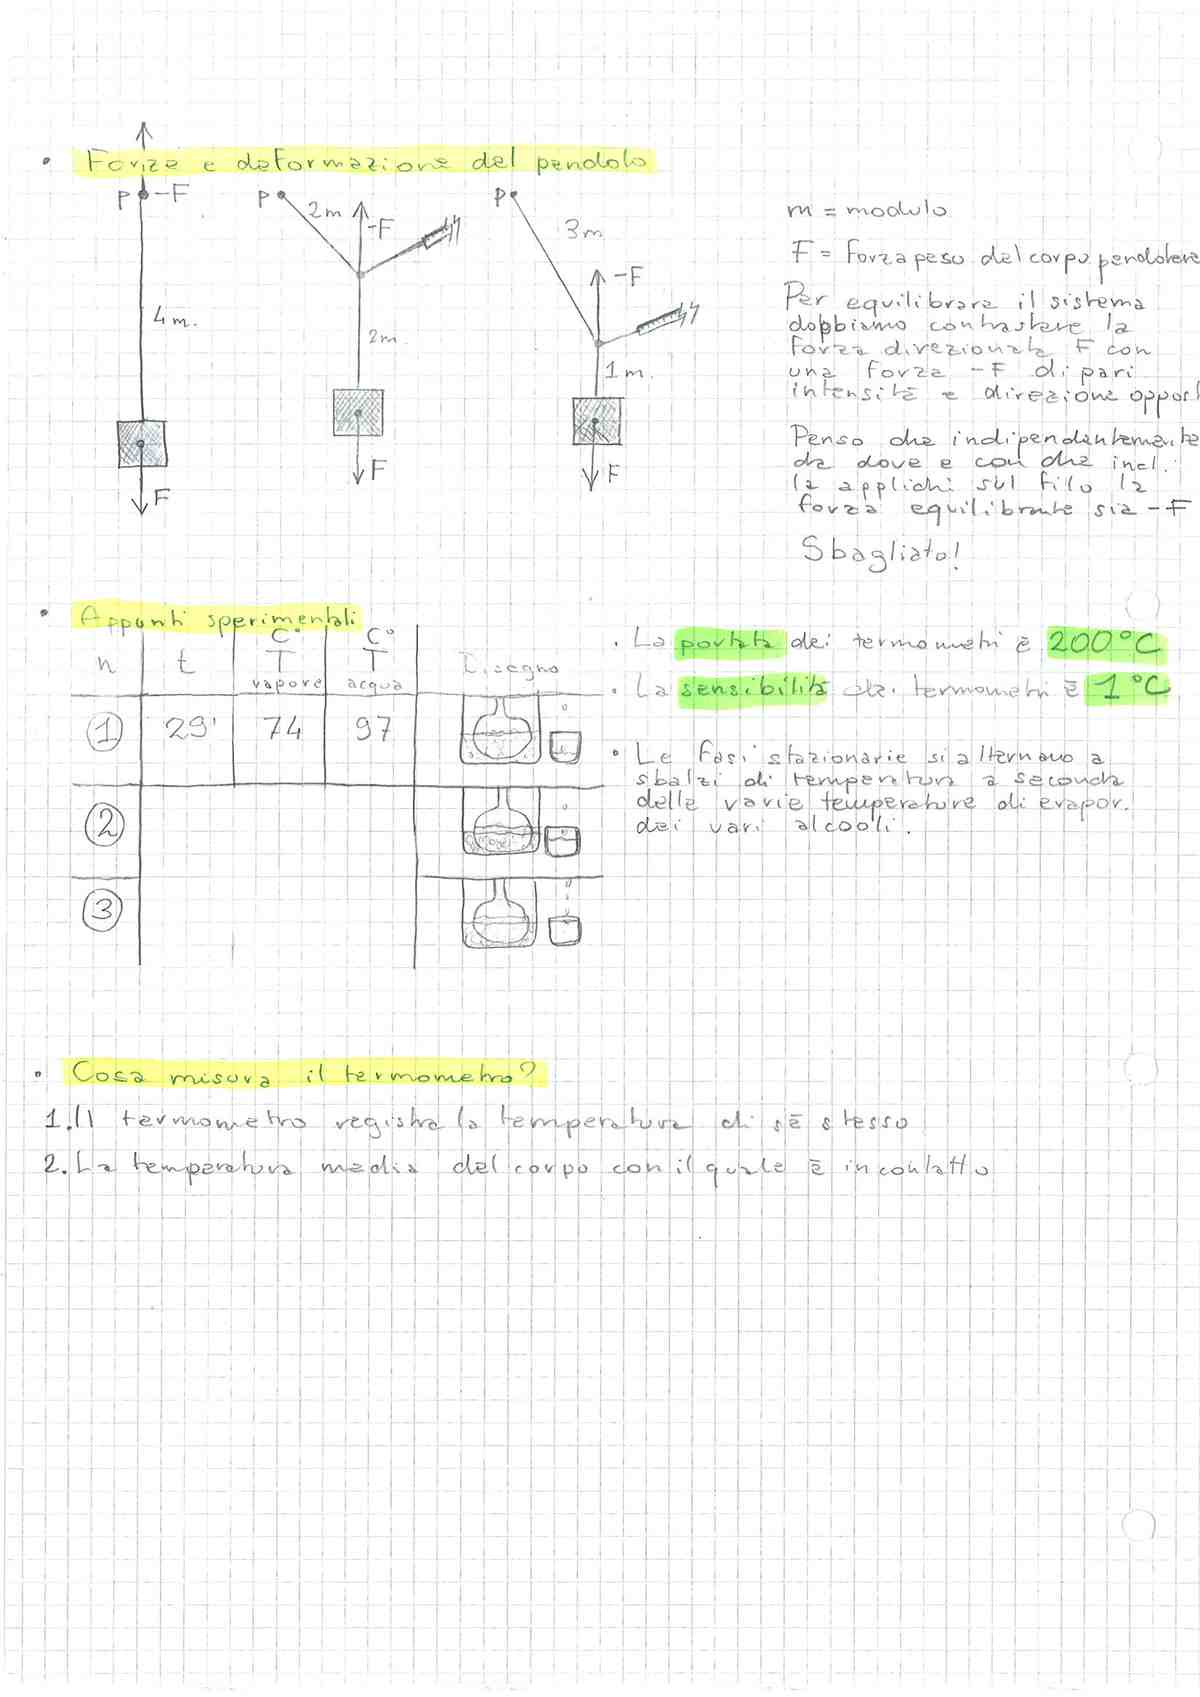 • Forze e deformazione del pendolo
P -F
4m.
F
P
2m
-F
2m.
F
P
3m
-F
1m.
F
m = modulo
F = Forza peso del corpo pendolare
Per equilibrare il sistema
dobbiamo contrastare la
forza direzionata F con
una forza -F di pari
intensità e direzione oppost
Penso che indipendentemente
da dove e con che incl.
la applichi sul filo la
forza equilibrante sia -F
Sbagliato!
• Appunti sperimentali
n
t
C°
T
vapore
C°
T
acqua
Disegno
1 29' 74 97
2
3
• La portata dei termometri è 200°C
• La sensibilità dei termometri è 1°C
• Le fasi stazionarie si alternano a
sbalzi di temperatura a seconda
delle varie temperature di evapor.
dei vari alcooli.
• Cosa misura il termometro?
1. Il termometro registra la temperatura di sè stesso
2. La temperatura media del corpo con il quale è in contatto